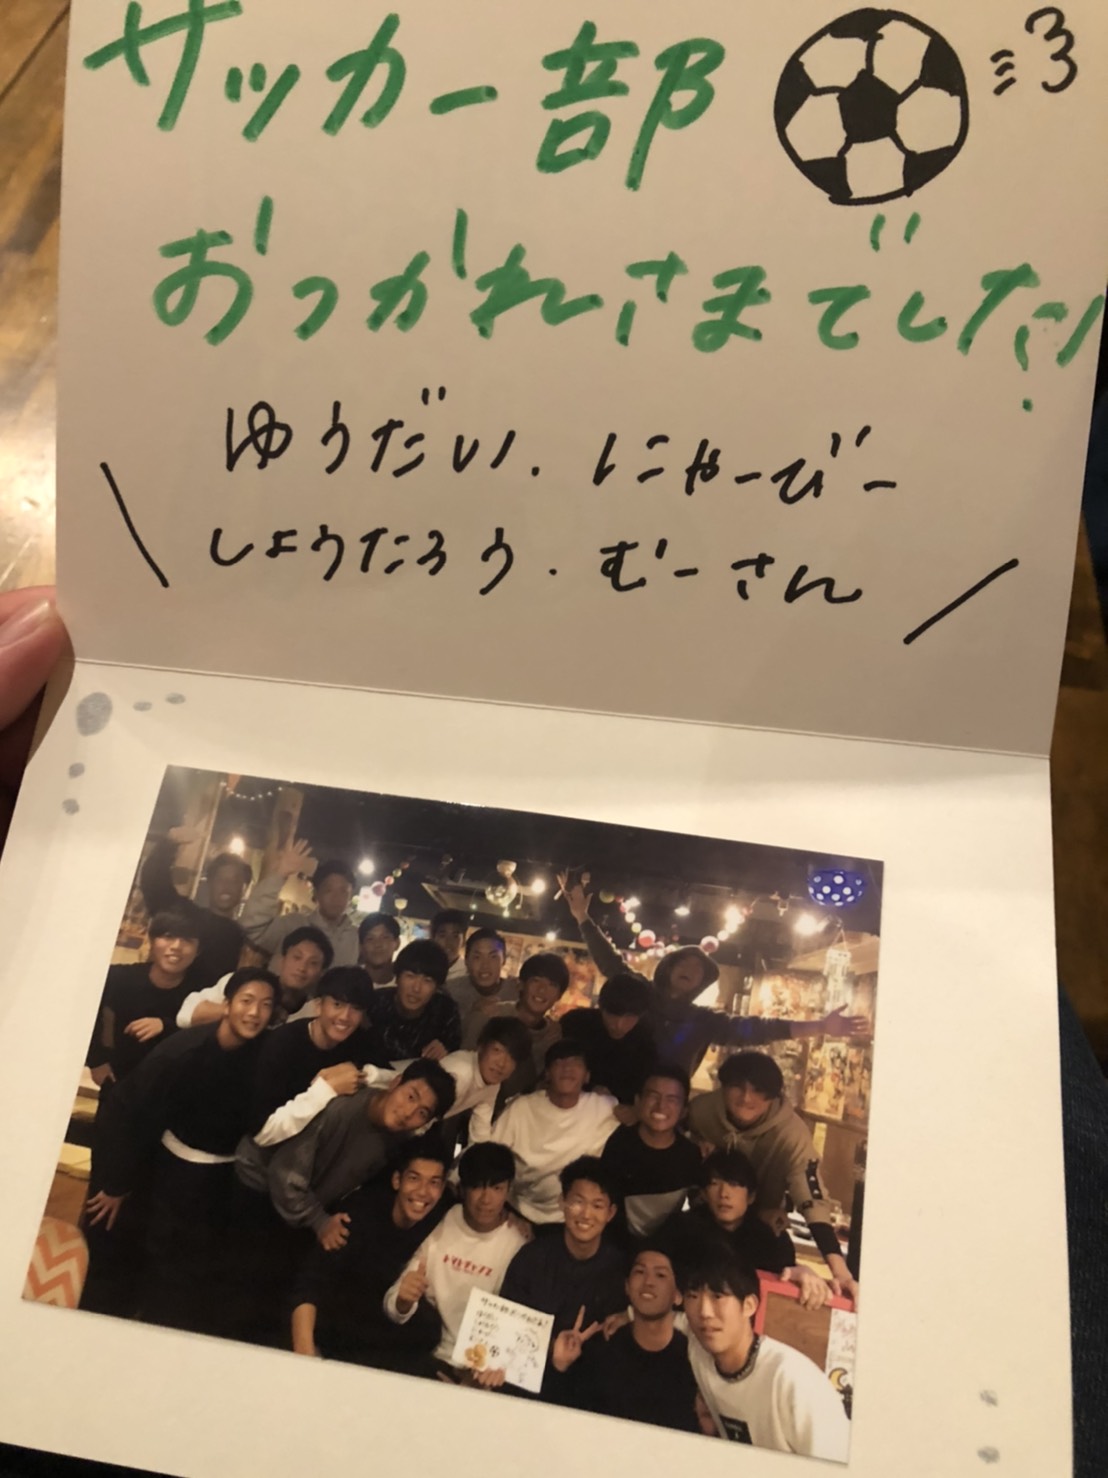 サッカー部
おつかれさまでした!
ゆうだい.にゃーびー
しょうたろう.むーさん